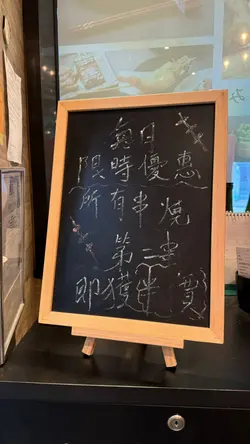 每日
限時優惠
所有串燒
第二串
即獲半價